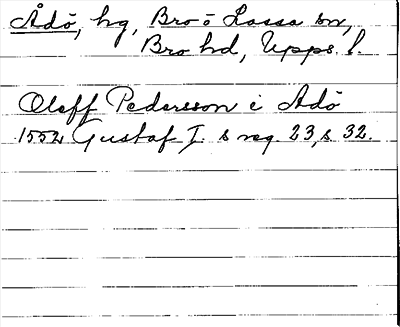 Ådö, hg, Bro o Lossa sn,
Bro hd, Upps. l.
Oleff Pedersson i Adö
1552 Gustaf I. s reg. 23, s 32.